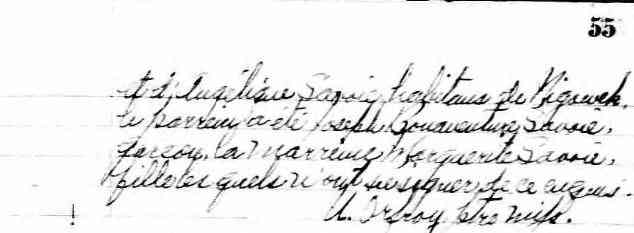 55
et d'Angélique Savoie habitans de Nigaweck.
le parrein a été Joseph Bonaventure Savoie,
garçon, la Marreine Marguerite Savoie,
fille les quels n'ont su signer de ce enquis.
ptre miss.